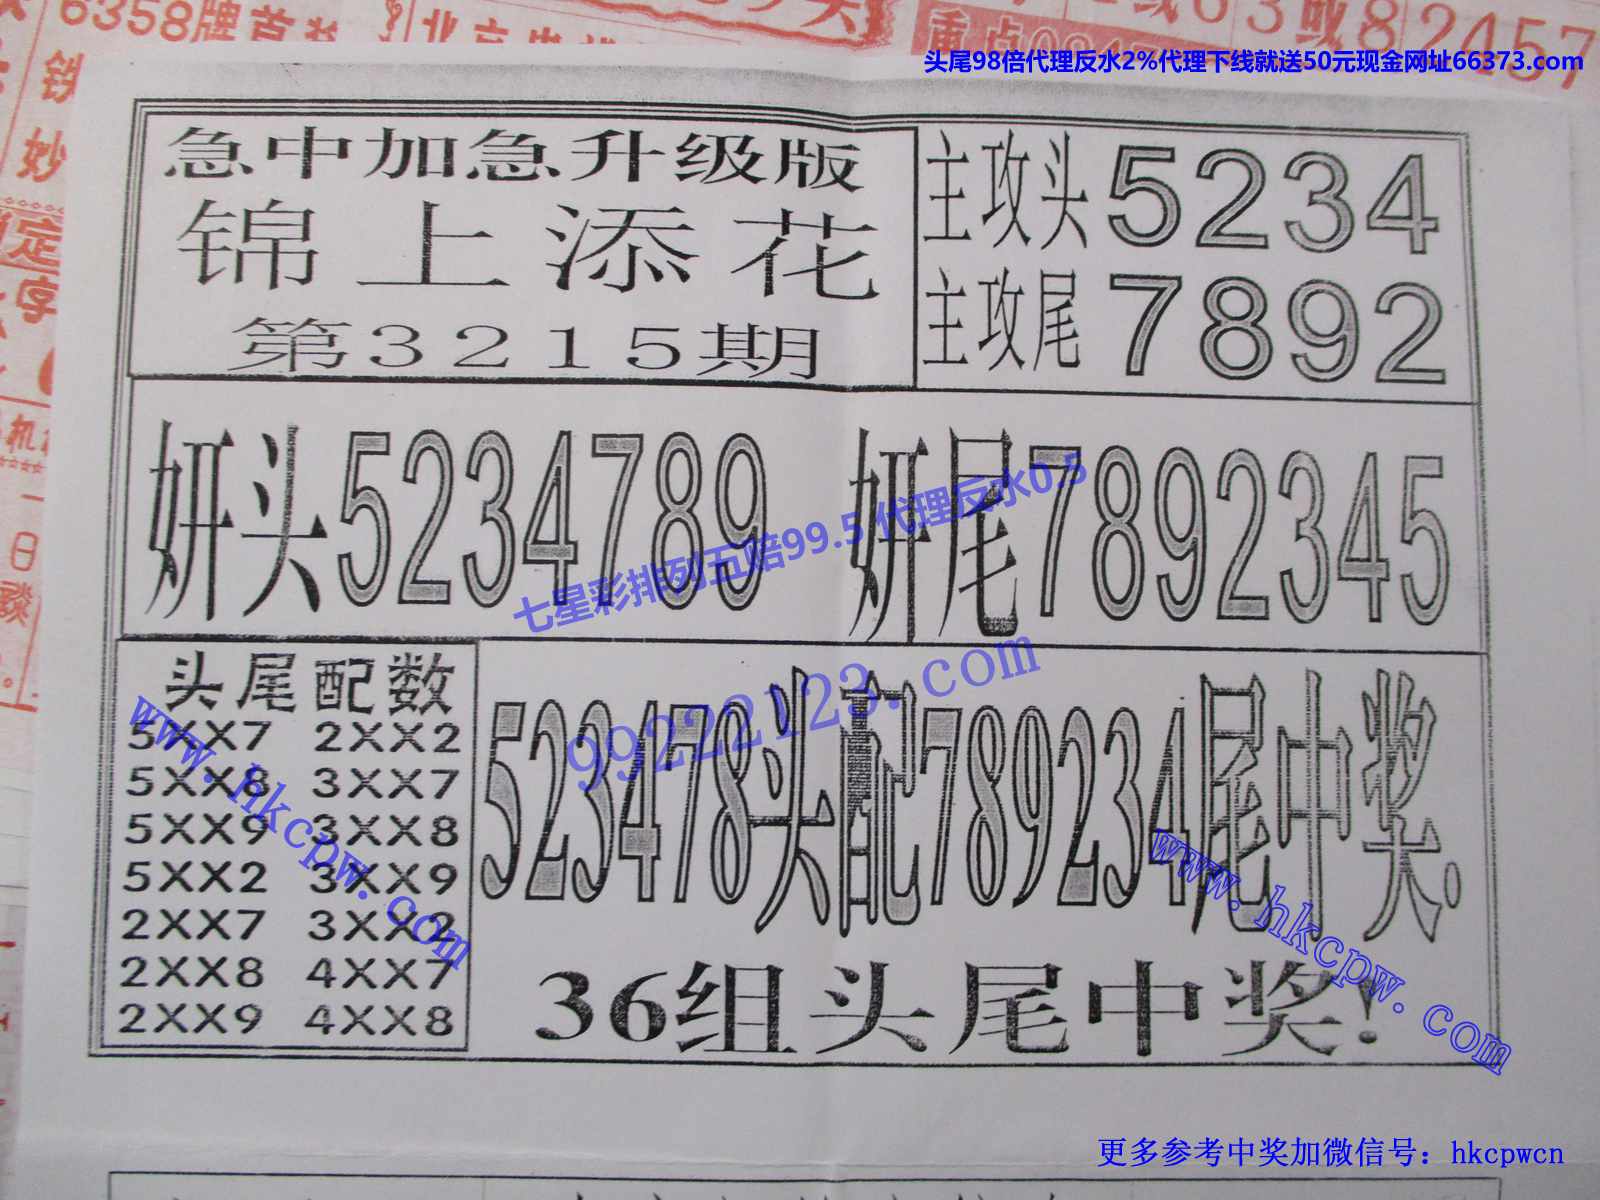 6358牌首
头尾98倍代理反水2%代理下线就送50元现金网址66373.com
急中加急升级版
锦上添花
第3215期
主攻头5234
主攻尾7892
妍头5234789
妍尾7892345
七星彩排列五赔99.5代理反水0.5
99222123.com
头尾配数
5XX7 2XX2
5XX8 3XX7
5XX9 3XX8
5XX2 3XX9
2XX7 3XX2
2XX8 4XX7
2XX9 4XX8
www.hkcpw.com
523478头配789234尾中奖.
36组头尾中奖!
www.hkcpw.com
更多参考中奖加微信号：hkcpwcn